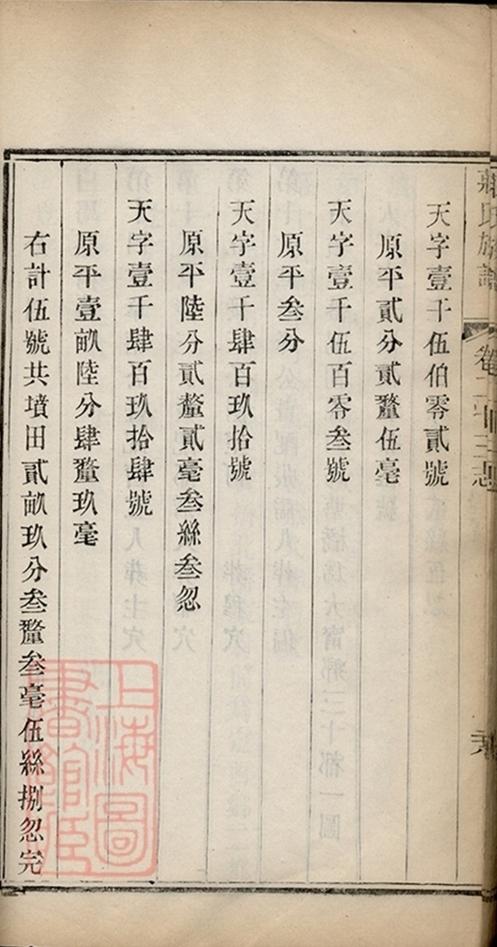 天字壹千伍伯零貳號
原平貳分貳釐伍毫
天字壹千伍百零叁號
原平叁分
天字壹千肆百玖拾號
原平陸分貳釐貳毫叁絲叁忽
天字壹千肆百玖拾肆號
原平壹畝陸分肆釐玖毫
右計伍號共墳田貳畝玖分叁釐叁毫伍絲捌忽完
上海圖書館藏